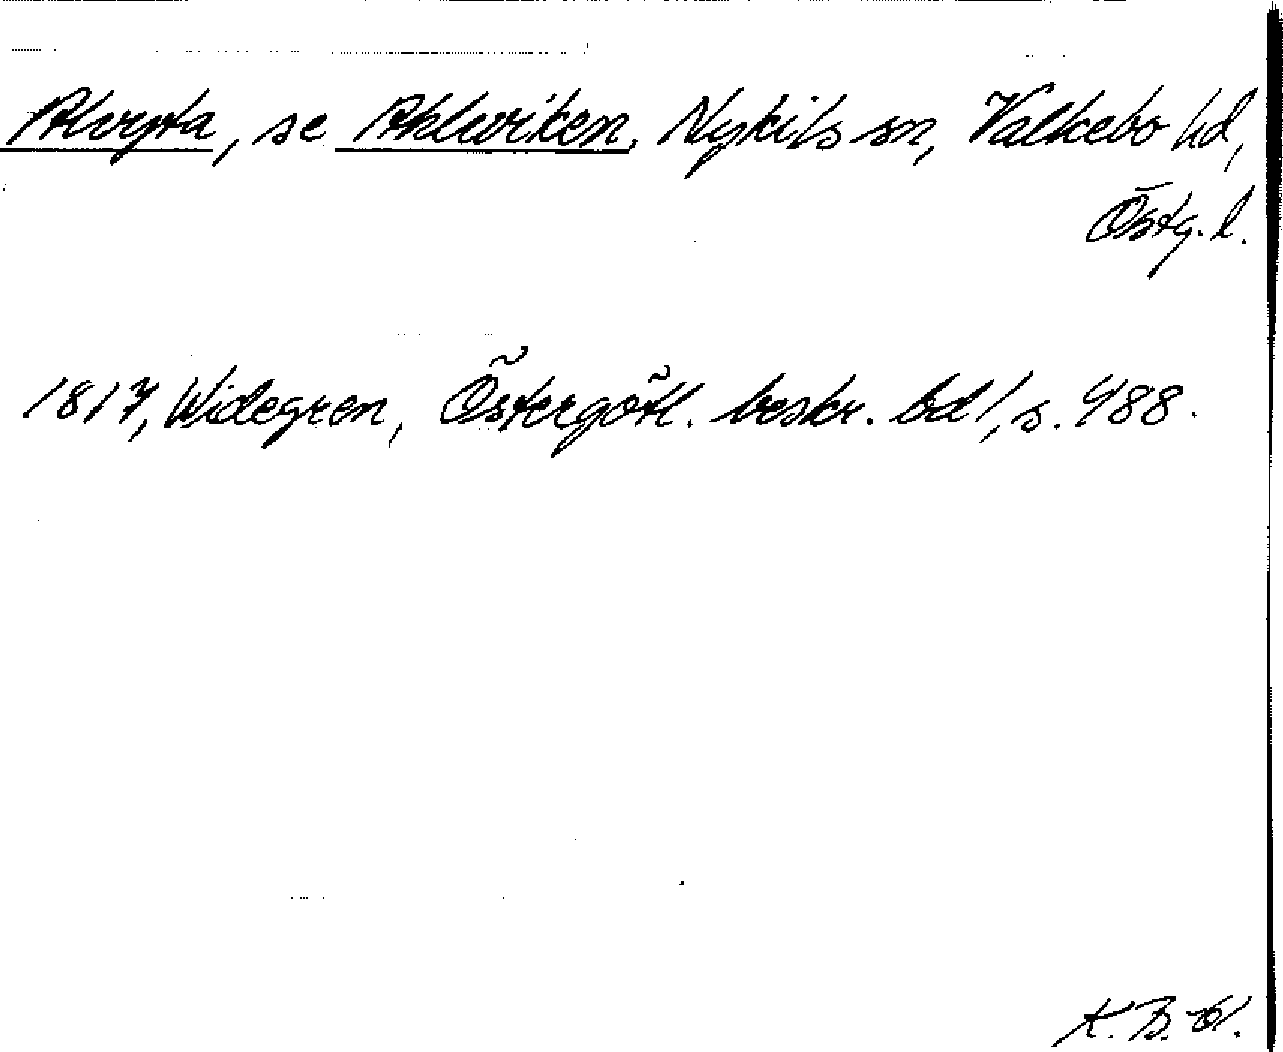 Alvryta, se Ahlwiken, Nykils sn, Valkebo hd,
Östg. l.
1817, Widegren, Östergötl. beskr. bd 1, s. 488.
K. B. W.